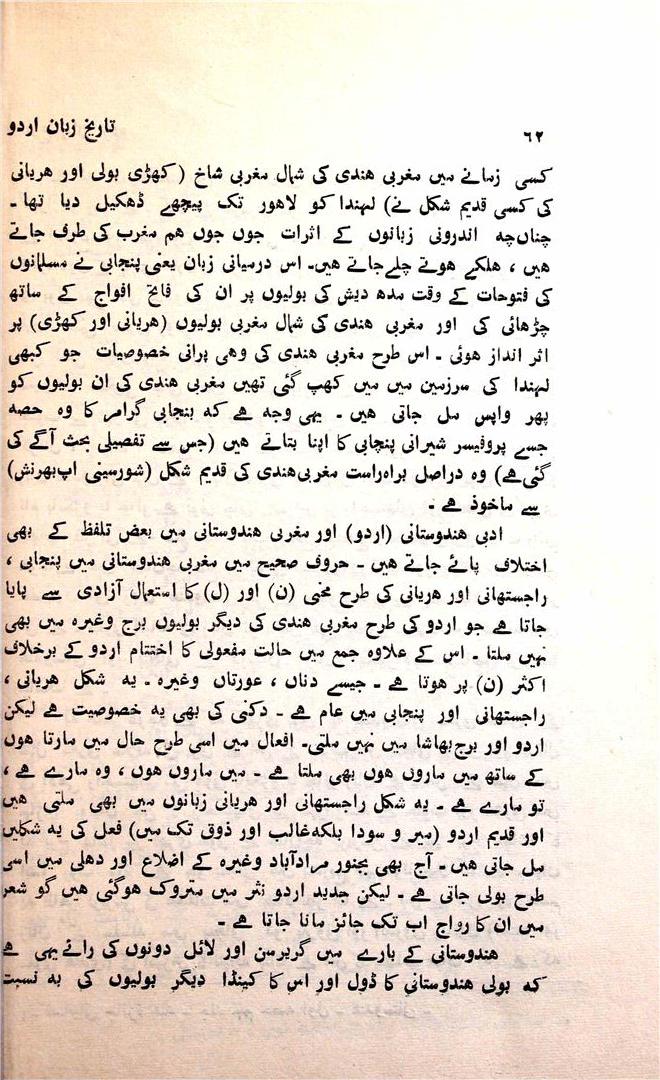 ۶۲
تاریخ زبان اردو
کسی زمانے میں مغربی ھندی کی شمال مغربی شاخ (کھڑی بولی اور ھریانی
کی کسی قدیم شکل نے) لہندا کو لاھور تک پیچھے ڈھکیل دیا تھا ۔
چناںچہ اندرونی زبانوں کے اثرات جوں جوں ھم مغرب کی طرف جاتے
ھیں ، ھلکے ھوتے چلے جاتے ھیں۔ اس درمیانی زبان یعنی پنجابی نے مسلمانوں
کی فتوحات کے وقت مدھ دیش کی بولیوں پر ان کی فاتح افواج کے ساتھ
چڑھائی کی اور مغربی ھندی کی شمال مغربی بولیوں (ھریانی اور کھڑی) پر
اثر انداز ھوئی ۔ اس طرح مغربی ھندی کی وھی پرانی خصوصیات جو کبھی
لہندا کی سرزمین میں میں کھپ گئی تھیں مغربی ھندی کی ان بولیوں کو
پھر واپس مل جاتی ھیں ۔ یہی وجہ ہے کہ پنجابی گرامر کا وہ حصہ
جسے پروفیسر شیرانی پنجابی کا اپنا بتاتے ھیں (جس سے تفصیلی بحث آگے کی
گئی ہے) وہ دراصل براہ راست مغربی ھندی کی قدیم شکل (شورسینی اپ بھرنش)
سے ماخوذ ہے ۔
ادبی ھندوستانی (اردو) اور مغربی ھندوستانی میں بعض تلفظ کے بھی
اختلاف پائے جاتے ھیں ۔ حروف صحیح میں مغربی ھندوستانی میں پنجابی ،
راجستھانی اور ھریانی کی طرح مخنی (ن) اور (ل) کا استعمال آزادی سے پایا
جاتا ہے جو اردو کی طرح مغربی ھندی کی دیگر بولیوں برج وغیرہ میں بھی
نہیں ملتا ۔ اس کے علاوہ جمع میں حالت مفعولی کا اختتام اردو کے برخلاف
اکثر (ن) پر ھوتا ہے ۔ جیسے دناں ، عورتاں وغیرہ ۔ یہ شکل ھریانی ،
راجستھانی اور پنجابی میں عام ہے ۔ دکنی کی بھی یہ خصوصیت ہے لیکن
اردو اور برج بھاشا میں نہیں ملتی۔ افعال میں اسی طرح حال میں مارتا ھوں
کے ساتھ میں ماروں ھوں بھی ملتا ہے ۔ میں ماروں ھوں ، وہ مارے ہے ،
تو مارے ہے ۔ یہ شکل راجستھانی اور ھریانی زبانوں میں بھی ملتی ھیں
اور قدیم اردو (میر و سودا بلکہ غالب اور ذوق تک میں) فعل کی یہ شکلیں
مل جاتی ھیں۔ آج بھی بجنور مرادآباد وغیرہ کے اضلاع اور دھلی میں اسی
طرح بولی جاتی ہے ۔ لیکن جدید اردو نثر میں متروک ھوگئی ھیں گو شعر
میں ان کا رواج اب تک جائز مانا جاتا ہے ۔
ھندوستانی کے بارے میں گریرسن اور لائل دونوں کی رائے یہی ہے
کہ بولی ھندوستانی کا ڈول اور اس کا کینڈا دیگر بولیوں کی بہ نسبت